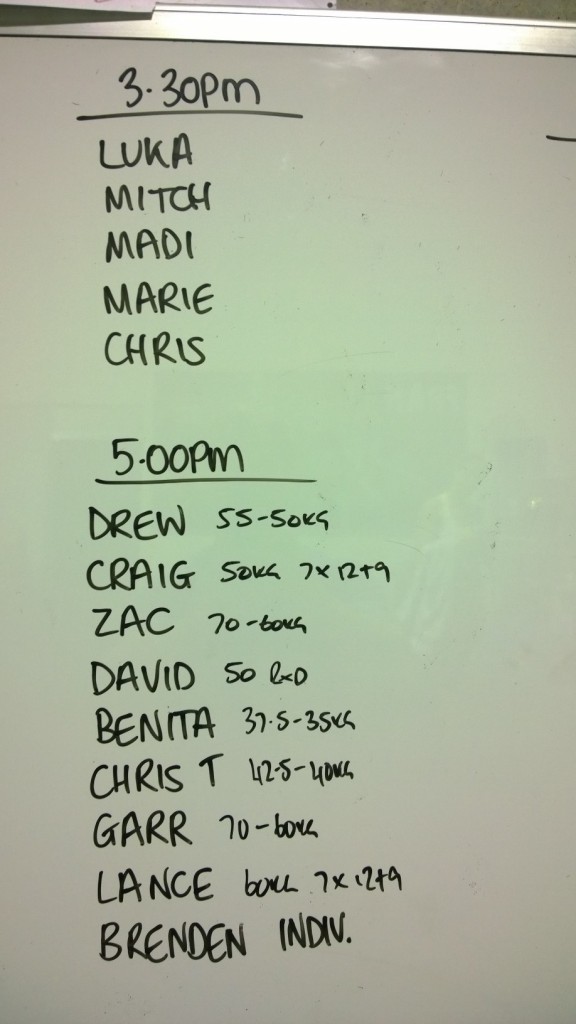 3.30pm
LUKA
MITCH
MADI
MARIE
CHRIS
5.00PM
DREW 55-50KG
CRAIG 50KG 7x12+9
ZAC 70-60KG
DAVID 50 RxD
BENITA 37.5-35KG
CHRIS T 42.5-40KG
GARR 70-60KG
LANCE 60KG 7x12+9
BRENDEN INDIV.